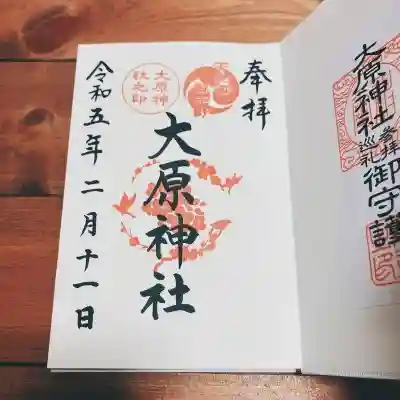 大原神社
参拝
巡礼
御守護
奉拝
大原神
社之印
大原神社
令和五年二月十一日